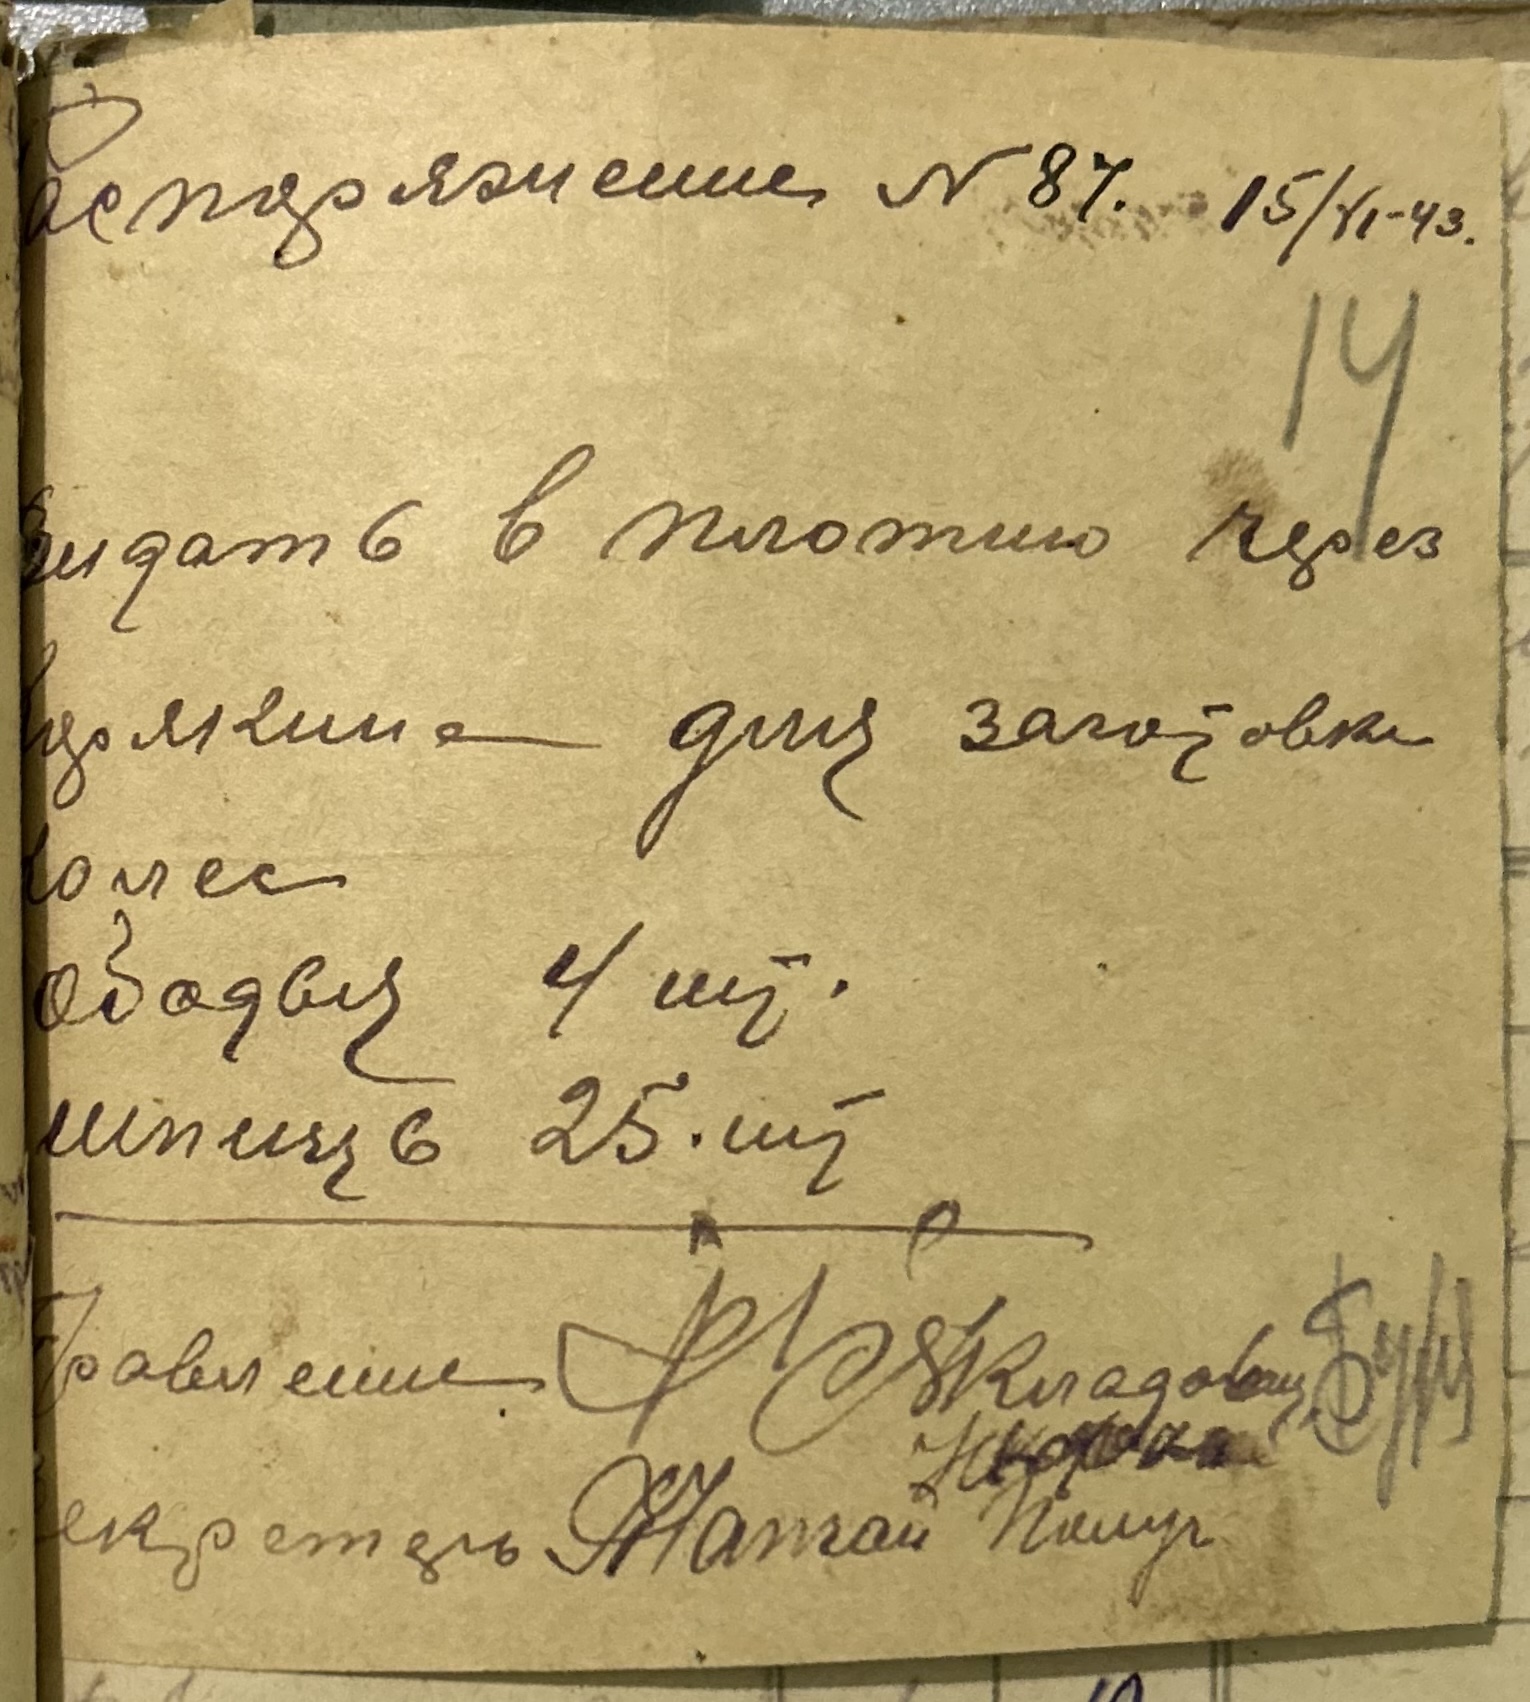 Распоряжение N 87. 15/VI-43.
14
Выдать в плотню через
для заготовки
колес
ободвя 4 шт.
шпицъ 25. шт
Правление Кладовщ
Секретарь Получ